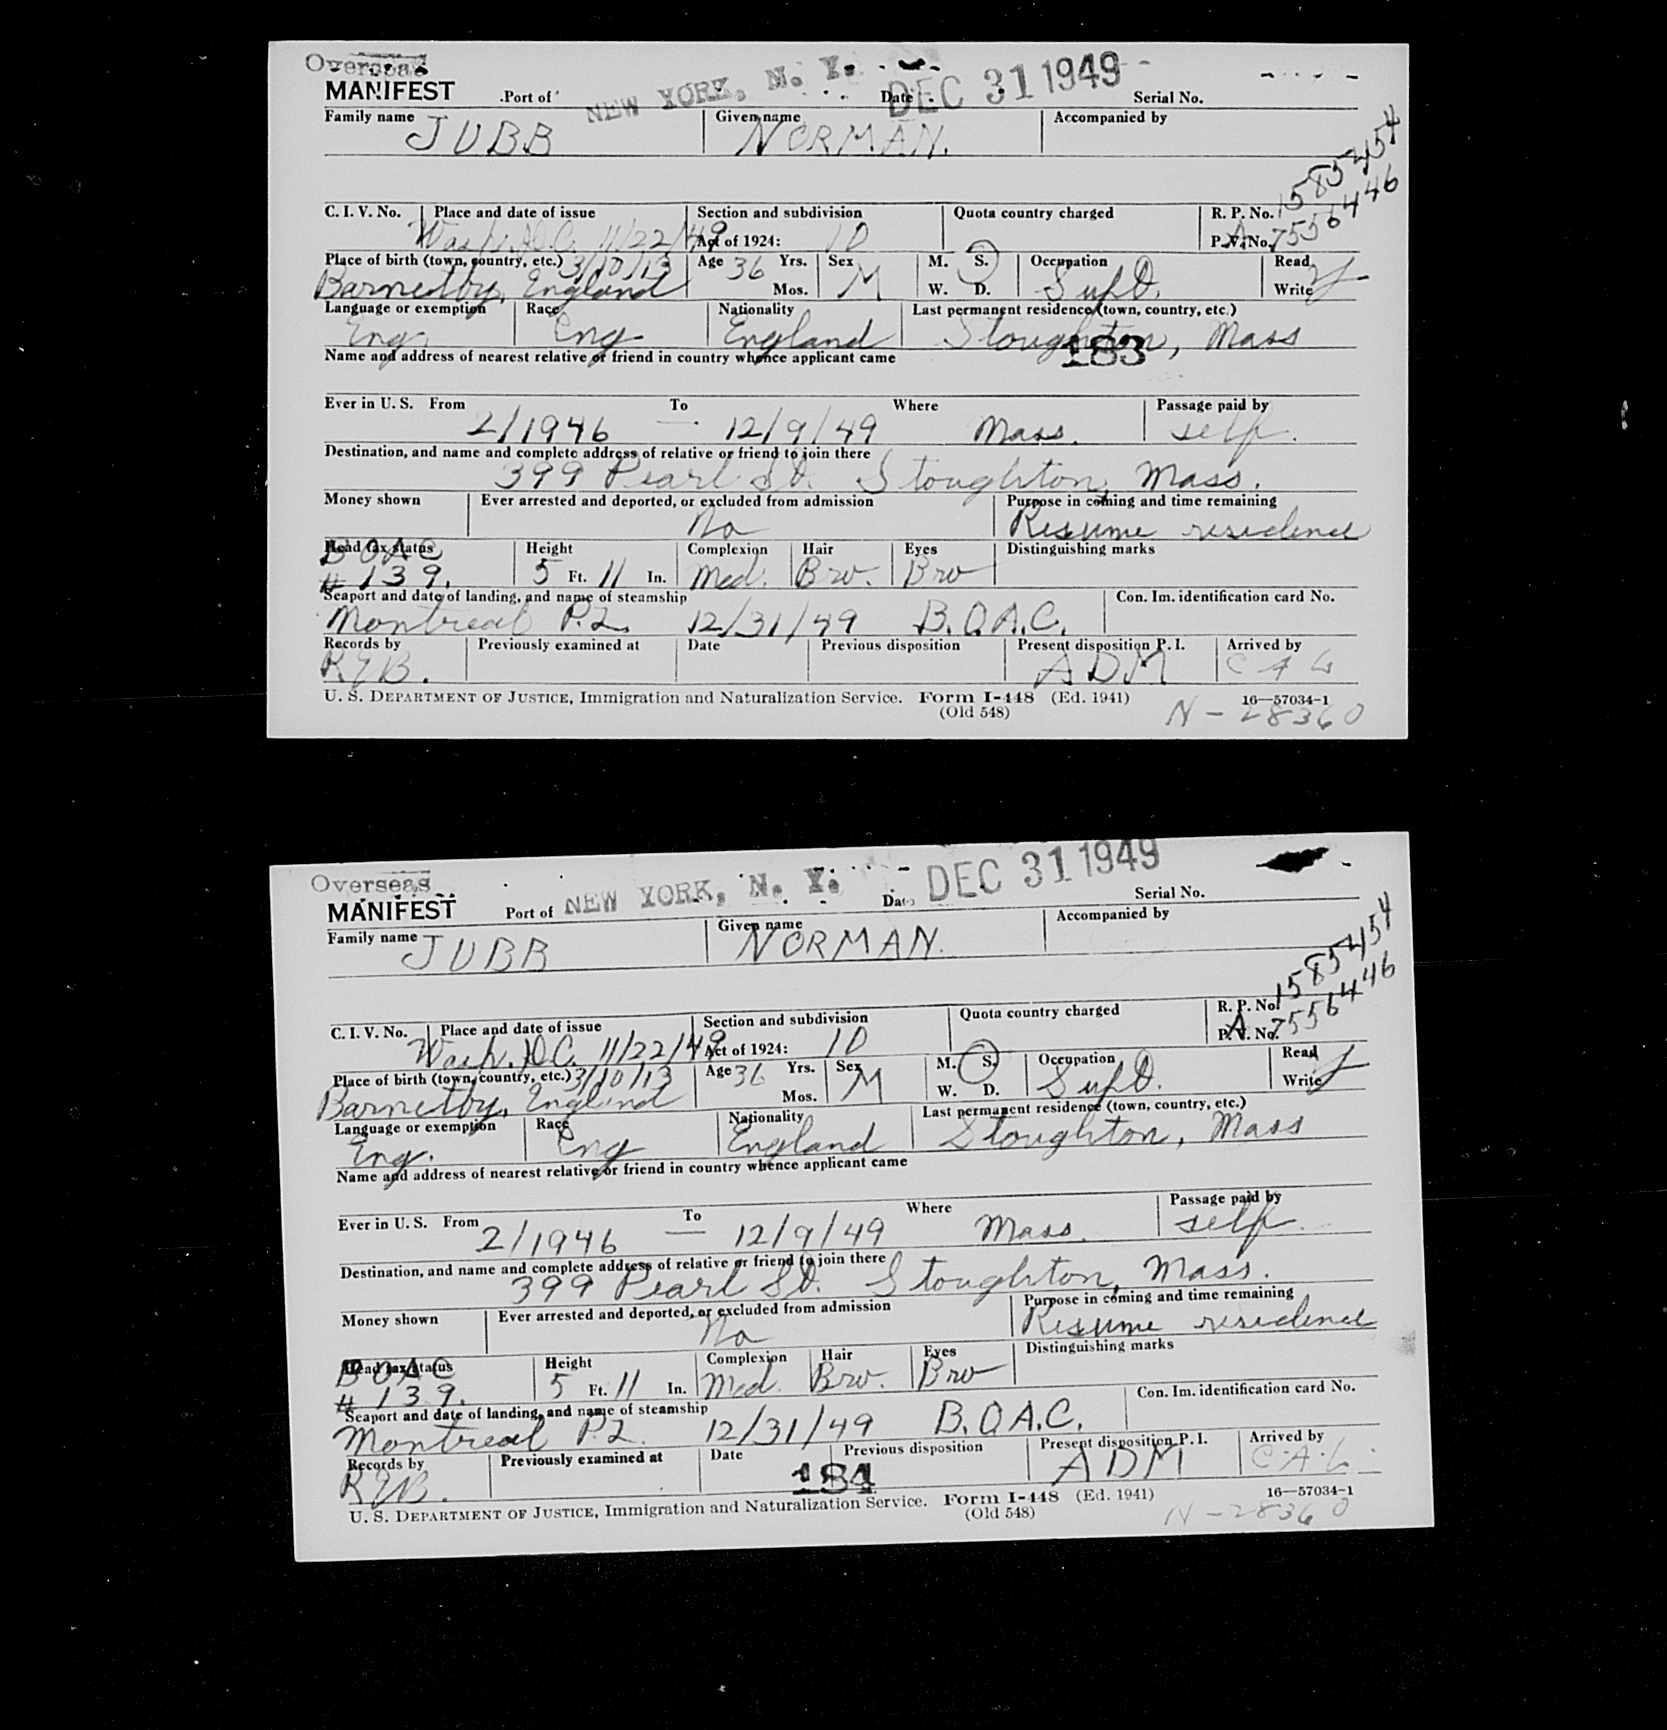 Overseas
MANIFEST Port of NEW YORK, N. Y. Date DEC 31 1949 Serial No.
Family name JUBB Given name NORMAN. Accompanied by
C. I. V. No. Place and date of issue Wash. D.C. 11/22/49 Section and subdivision Act of 1924: 1D Quota country charged R. P. No. 1585454
P. V. No. A 7556446
Place of birth (town, country, etc.) 3/10/13 Age 36 Yrs. Sex M M. S. Occupation Supt. Read
Barnetby, England Mos. W. D. Write
Language or exemption Race Nationality Last permanent residence (town, country, etc.)
Eng. Eng England Stoughton, Mass
183
Name and address of nearest relative or friend in country whence applicant came
Ever in U. S. From 2/1946 To — 12/9/49 Where Mass. Passage paid by self.
Destination, and name and complete address of relative or friend to join there
399 Pearl St. Stoughton, Mass.
Money shown Ever arrested and deported, or excluded from admission No Purpose in coming and time remaining Resume residence
Head tax status Height Complexion Hair Eyes Distinguishing marks
BOAC
# 139. 5 Ft. 11 In. Med. Brw. Brw
Seaport and date of landing, and name of steamship Con. Im. identification card No.
Montreal P.Q. 12/31/49 B.O.A.C.
Records by Previously examined at Date Previous disposition Present disposition P. I. Arrived by
ADM
U. S. DEPARTMENT OF JUSTICE, Immigration and Naturalization Service. Form I-448 (Ed. 1941) 16—57034-1
(Old 548) N-28360
Overseas
MANIFEST Port of NEW YORK, N. Y. Date DEC 31 1949 Serial No.
Family name JUBB Given name NORMAN. Accompanied by
C. I. V. No. Place and date of issue Wash. D.C. 11/22/49 Section and subdivision Act of 1924: 1D Quota country charged R. P. No. 1585454
P. V. No. A 7556446
Place of birth (town, country, etc.) 3/10/13 Age 36 Yrs. Sex M M. S. Occupation Supt. Read
Barnetby, England Mos. W. D. Write
Language or exemption Race Nationality Last permanent residence (town, country, etc.)
Eng. Eng England Stoughton, Mass
Name and address of nearest relative or friend in country whence applicant came
Ever in U. S. From 2/1946 To — 12/9/49 Where Mass. Passage paid by self.
Destination, and name and complete address of relative or friend to join there
399 Pearl St. Stoughton, Mass.
Money shown Ever arrested and deported, or excluded from admission No Purpose in coming and time remaining Resume residence
Head tax status Height Complexion Hair Eyes Distinguishing marks
BOAC
# 139. 5 Ft. 11 In. Med. Brw. Brw
Seaport and date of landing, and name of steamship Con. Im. identification card No.
Montreal P.Q. 12/31/49 B.O.A.C.
Records by Previously examined at Date Previous disposition Present disposition P. I. Arrived by
184 ADM
U. S. DEPARTMENT OF JUSTICE, Immigration and Naturalization Service. Form I-448 (Ed. 1941) 16—57034-1
(Old 548) N-28360